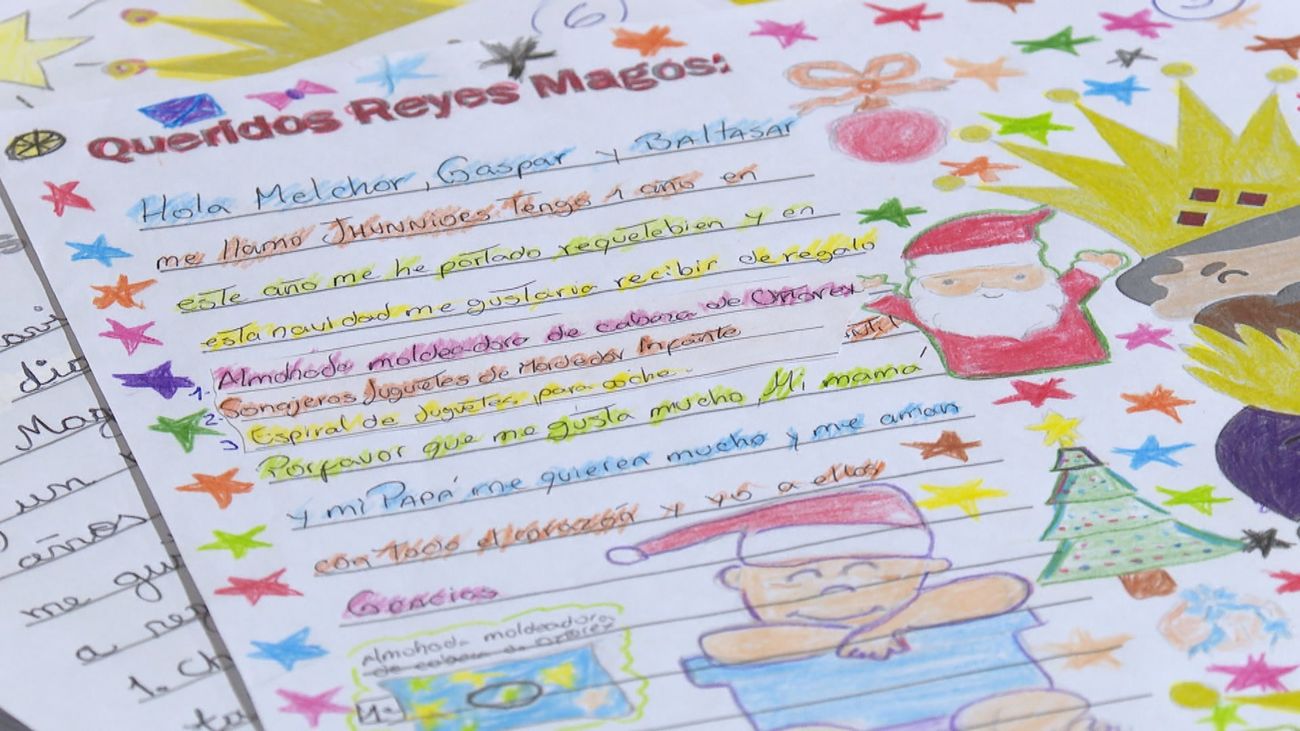 Queridos Reyes Magos:
Hola Melchor, Gaspar y BALTASAR
me llamo JHUNNIOES Tengo 1 año en
este año me he portado requetebien y en
esta navidad me gustaria recibir de regalo
1- Almohada moldeadora de cabeza de
2- Sonajeros Juguetes de Mordedor Infante
3 Espiral de Juguetes, para coche.
Porfavor que me gusta mucho, Mi mamá
y mi PAPÁ me quieren mucho y me aman
con todo el corazón y yo a ellos
Gracias
Almohada moldeadora
de cabeza de
6
dic
Mag
un
años
me gu
a re
1. Ch